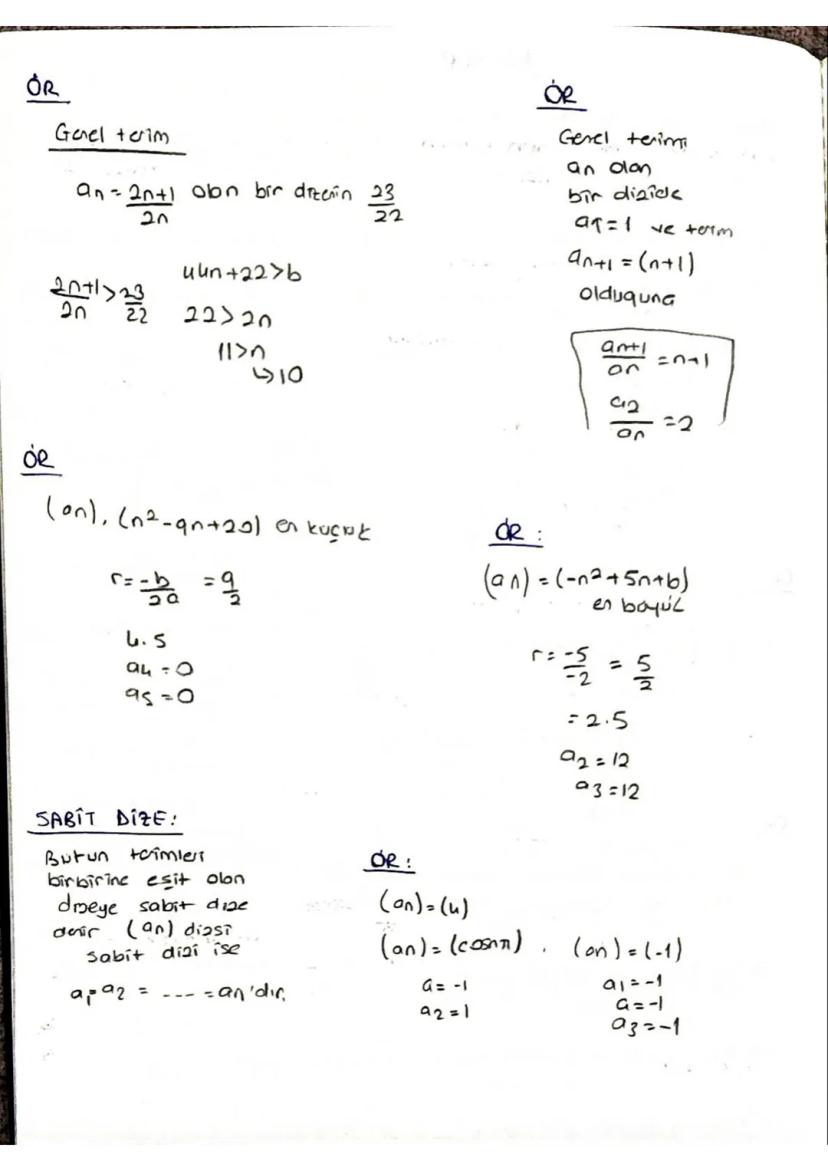 ÖR
Genel terim
an = 2n+1/2n olan bir dizenin 23/22
2n+1/2n > 23/22
44n+22>b
22>2n
11>n
↳10
ÖR
Genel terimi
an olan
bir dizide
a1=1 ve term
an+1 = (n+1)
olduguna
an+1/an = n+1
a2/an = 2
ÖR
(an), (n²-9n+20) en kuçuk
r = -b/2a = 9/2
4.5
a4 = 0
a5 = 0
ÖR :
(an) = (-n²+5n+b)
en boyük
r = -5/-2 = 5/2
= 2.5
a2 = 12
a3 = 12
SABİT DİZE:
Butun terimleri
birbirine eşit olan
dizeye sabit dize
denir (an) dizisi
sabit dizi ise
a1=a2 = ---- = an'dır.
ÖR :
(an) = (4)
(an) = (cosnπ) .
a = -1
a2 = 1
(an) = (-1)
a1 = -1
a = -1
a3 = -1